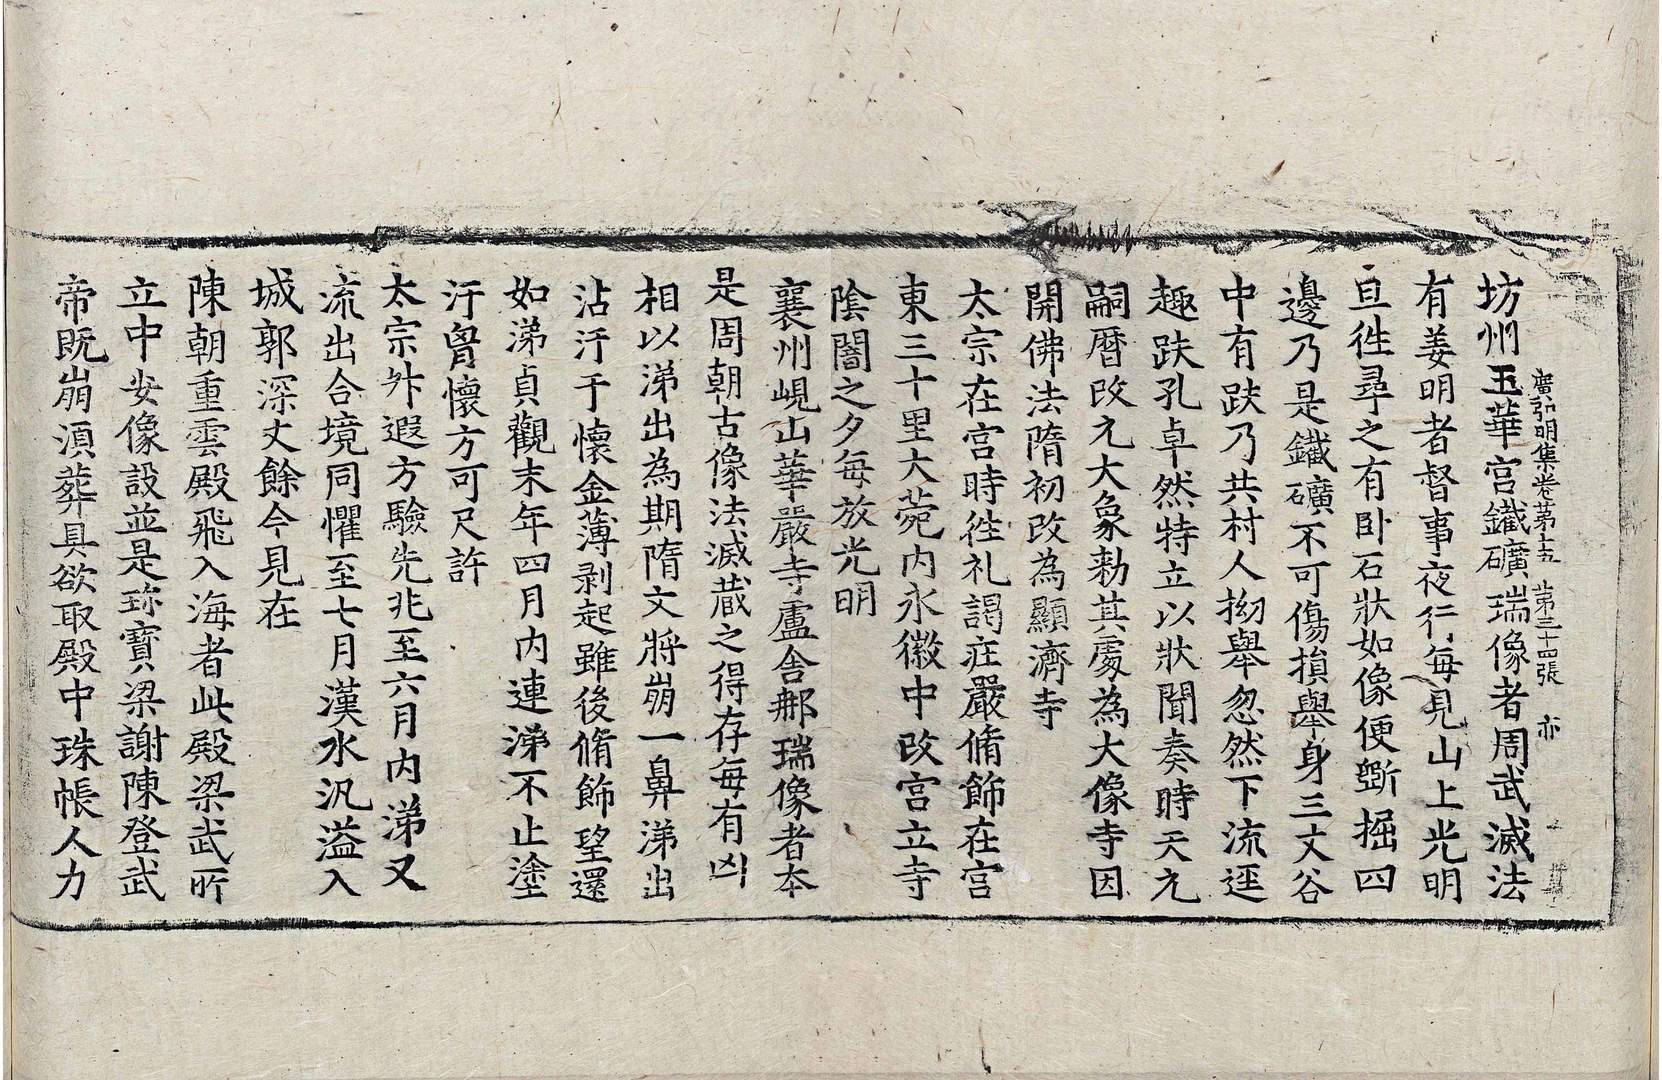 廣弘明集卷第十五　第三十四張　亦
坊州玉華宮鐵礦瑞像者周武滅法
有姜明者督事夜行每見山上光明
旦徃尋之有臥石狀如像便斵掘四
邊乃是鐵礦不可傷損舉身三丈谷
中有趺乃共村人拗舉忽然下流逕
趣趺孔卓然特立以狀聞奏時天元
嗣曆改元大象勑其處為大像寺因
開佛法隋初改為顯濟寺
太宗在宮時徃礼謁莊嚴脩飾在宮
東三十里大苑内永徽中改宮立寺
陰闇之夕每放光明
襄州峴山華嚴寺盧舍那瑞像者本
是周朝古像法滅藏之得存每有凶
相以涕出為期隋文將崩一鼻涕出
沾汙于懷金薄剥起雖後脩飾望還
如涕貞觀末年四月内連涕不止塗
汙胷懷方可尺許
太宗升遐方驗先兆至六月内涕又
流出合境同懼至七月漢水汎溢入
城郭深丈餘今見在
陳朝重雲殿飛入海者此殿梁武所
立中安像設並是珎寳梁謝陳登武
帝既崩湏葬具欲取殿中珠帳人力